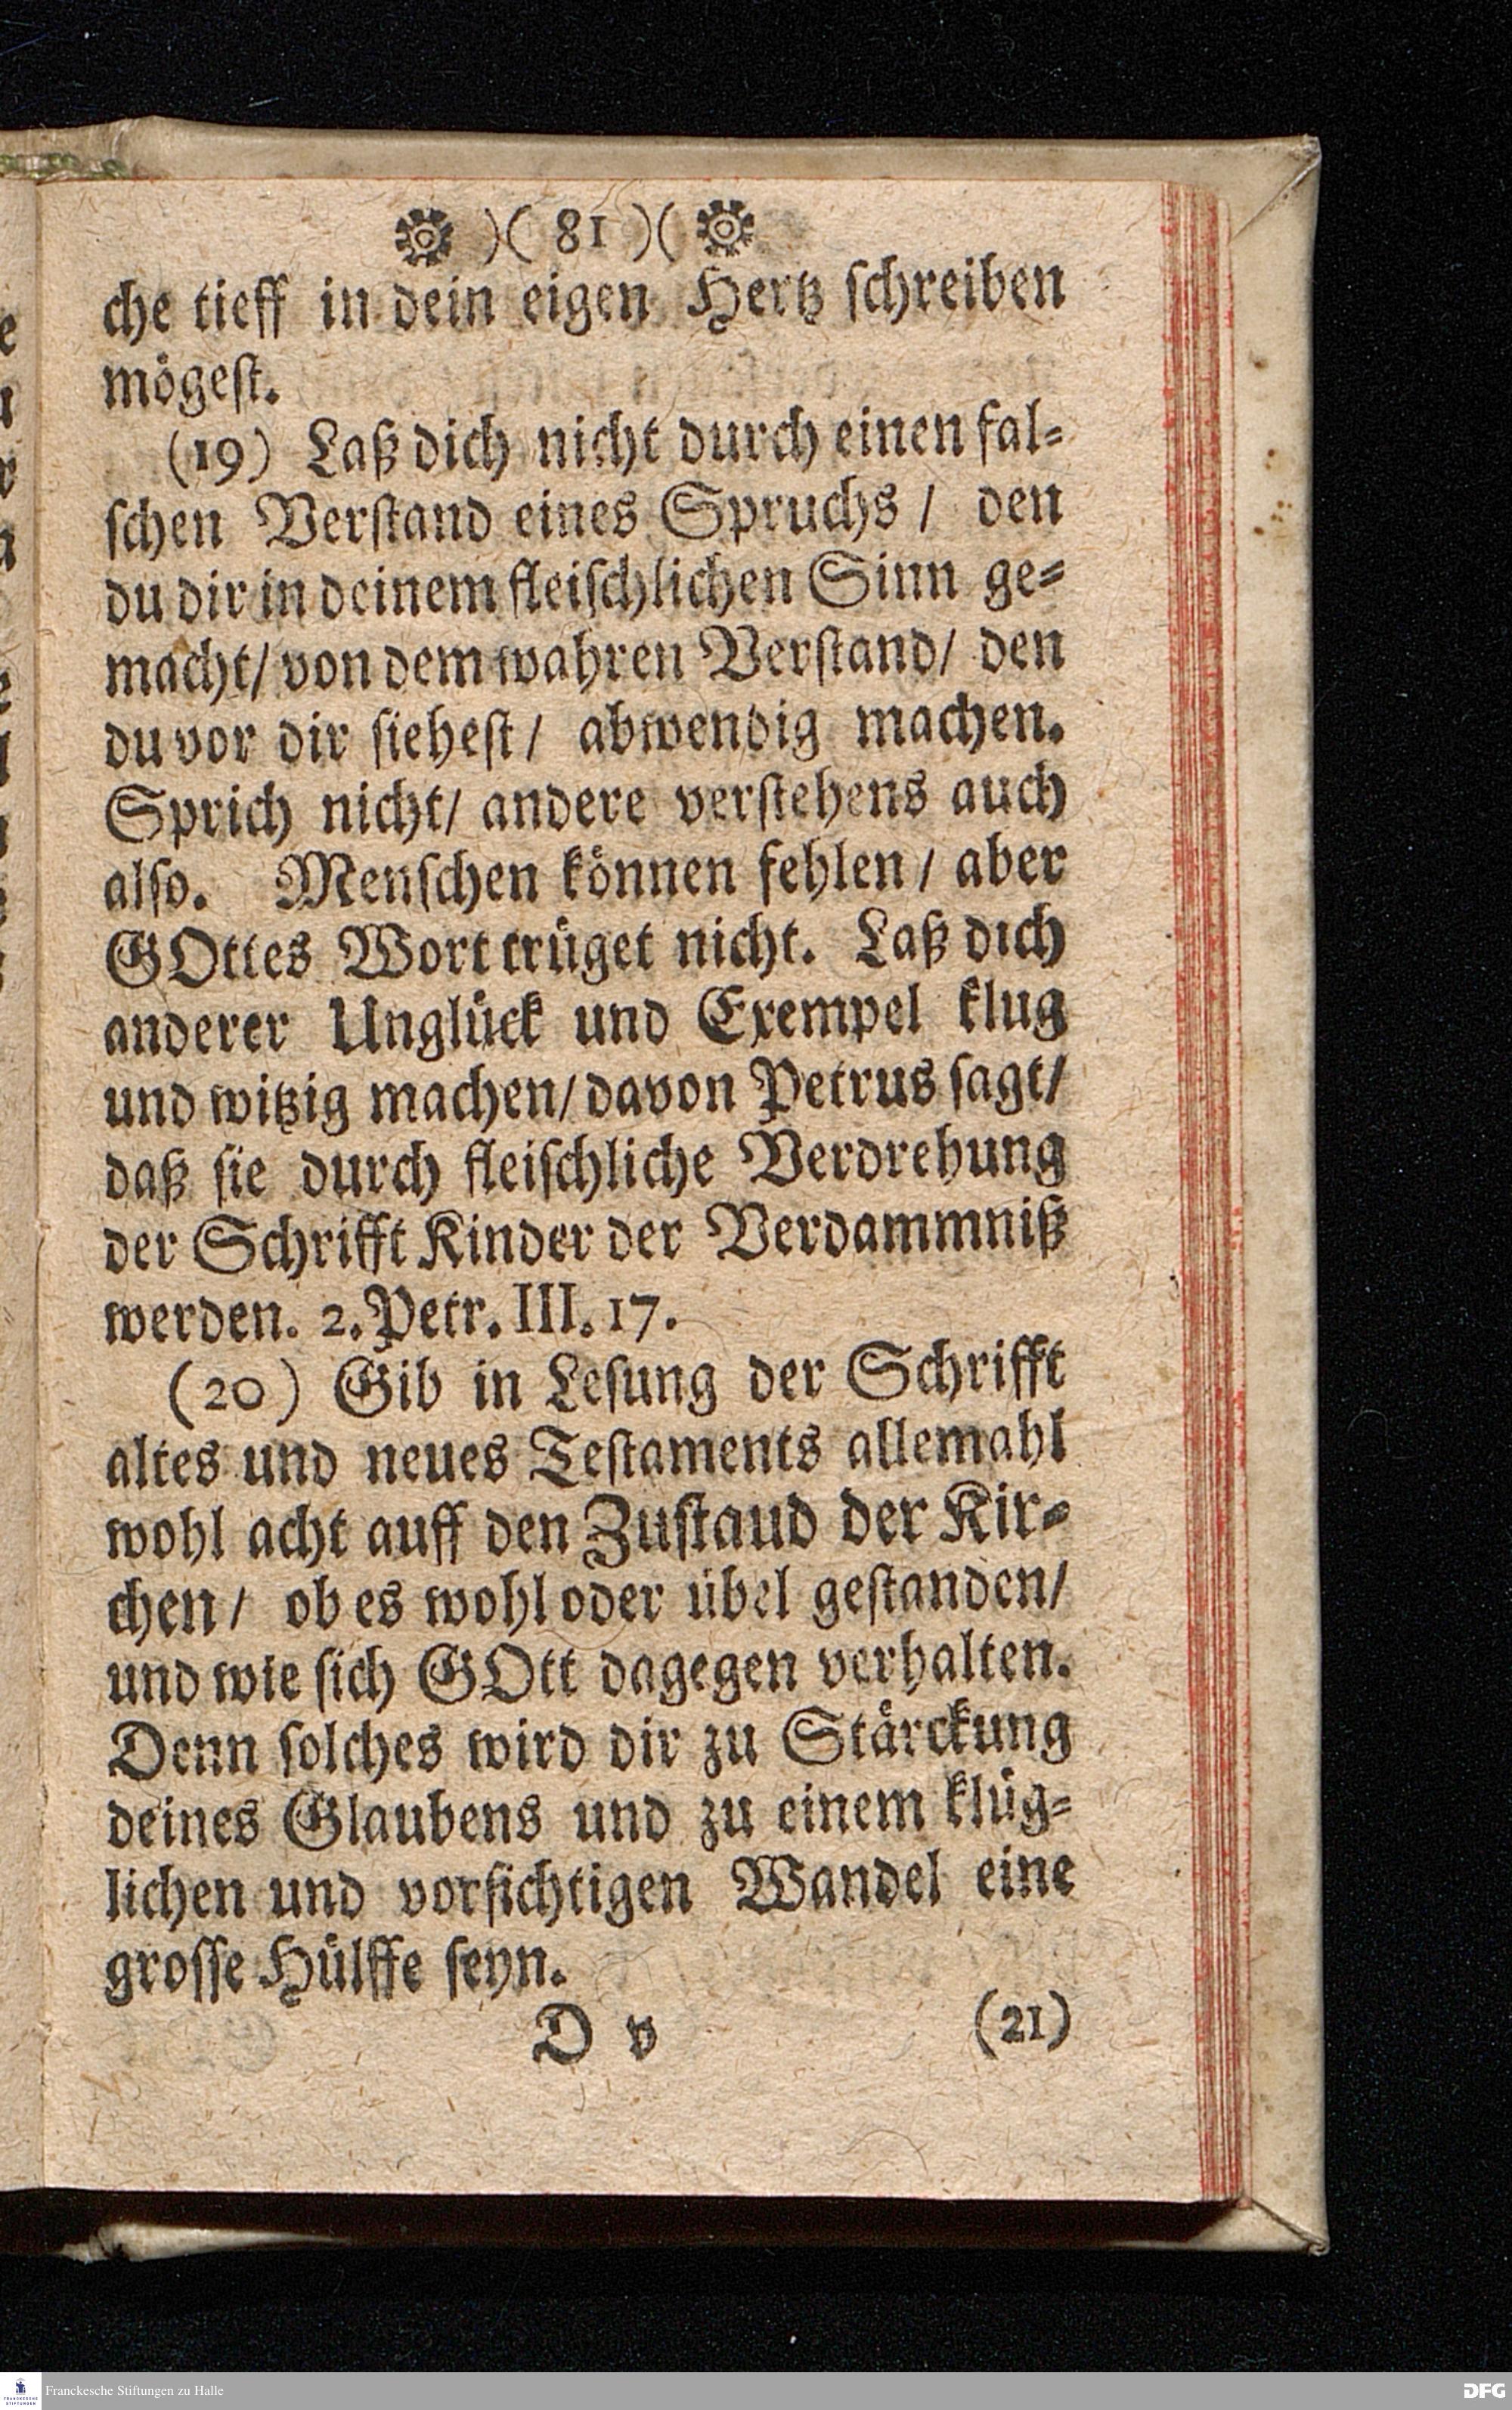 )( 81 )(
che tieff in dein eigen Hertz ſchreiben
mögeſt.
(19) Laß dich nicht durch einen fal⸗
ſchen Verſtand eines Spruchs / den
du dir in deinem fleiſchlichen Sinn ge⸗
macht/ von dem wahren Verſtand/ den
du vor dir ſieheſt / abwendig machen.
Sprich nicht/ andere verſtehens auch
alſo. Menſchen können fehlen / aber
GOttes Wort trüget nicht. Laß dich
anderer Unglück und Exempel klug
und witzig machen/ davon Petrus ſagt/
daß ſie durch fleiſchliche Verdrehung
der Schrifft Kinder der Verdammniß
werden. 2. Petr. III. 17.
(20) Gib in Leſung der Schrifft
altes und neues Teſtaments allemahl
wohl acht auff den Zuſtaud der Kir⸗
chen / ob es wohl oder übel geſtanden/
und wie ſich GOtt dagegen verhalten.
Denn ſolches wird dir zu Stärckung
deines Glaubens und zu einem klüg⸗
lichen und vorſichtigen Wandel eine
groſſe Hülffe ſeyn.
D v (21)
Franckesche Stiftungen zu Halle
DFG